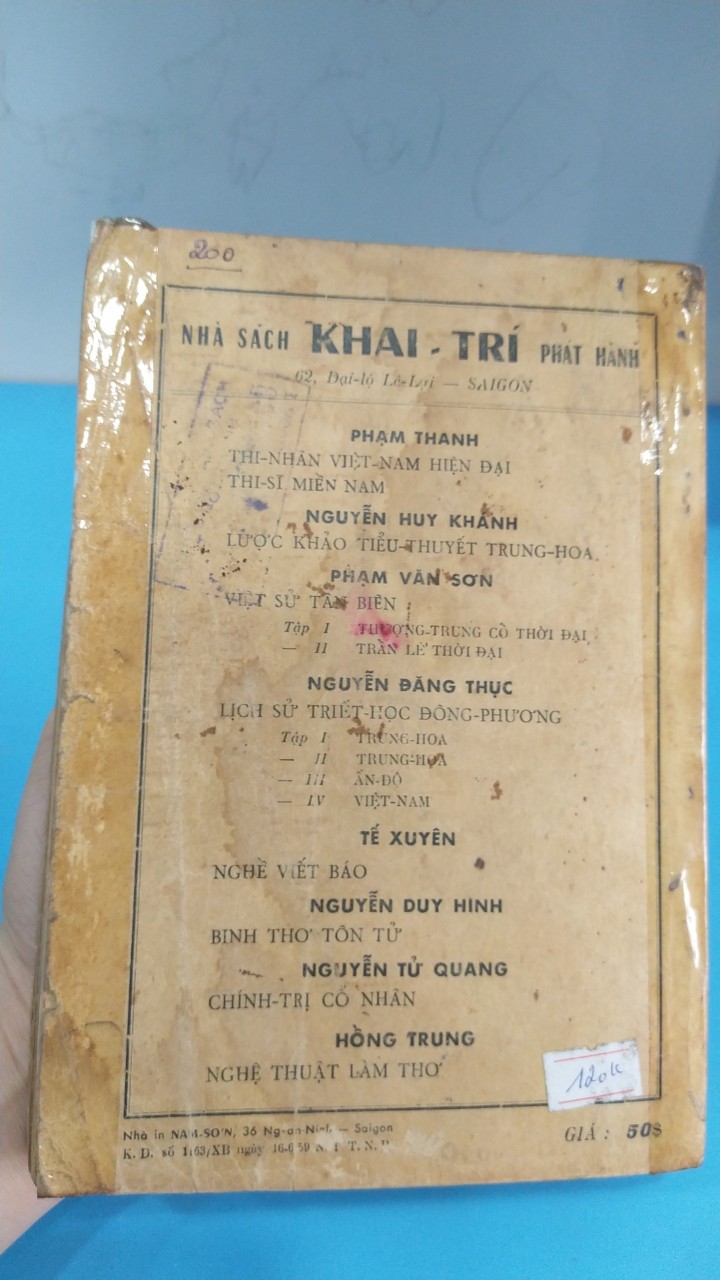 200
NHÀ SÁCH KHAI - TRÍ PHÁT HÀNH
62, Đại-lộ Lê-Lợi — SAIGON
PHẠM THANH
THI-NHÂN VIỆT-NAM HIỆN ĐẠI
THI-SĨ MIỀN NAM
NGUYỄN HUY KHÁNH
LƯỢC KHẢO TIỂU-THUYẾT TRUNG-HOA
PHẠM VĂN SƠN
VIỆT SỬ TÂN BIÊN :
Tập I THƯỢNG-TRUNG CỔ THỜI ĐẠI
— II TRẦN LÊ THỜI ĐẠI
NGUYỄN ĐĂNG THỤC
LỊCH SỬ TRIẾT-HỌC ĐÔNG-PHƯƠNG
Tập I TRUNG-HOA
— II TRUNG-HOA
— III ẤN-ĐỘ
— IV VIỆT-NAM
TẾ XUYÊN
NGHỀ VIẾT BÁO
NGUYỄN DUY HINH
BINH THƠ TÔN TỬ
NGUYỄN TỬ QUANG
CHÍNH-TRỊ CỔ NHÂN
HỒNG TRUNG
NGHỆ THUẬT LÀM THƠ
120k
Nhà in NAM-SƠN, 36 Ng-an-Ninh — Saigon
GIÁ : 50$
K. D. số 1163/XB ngày